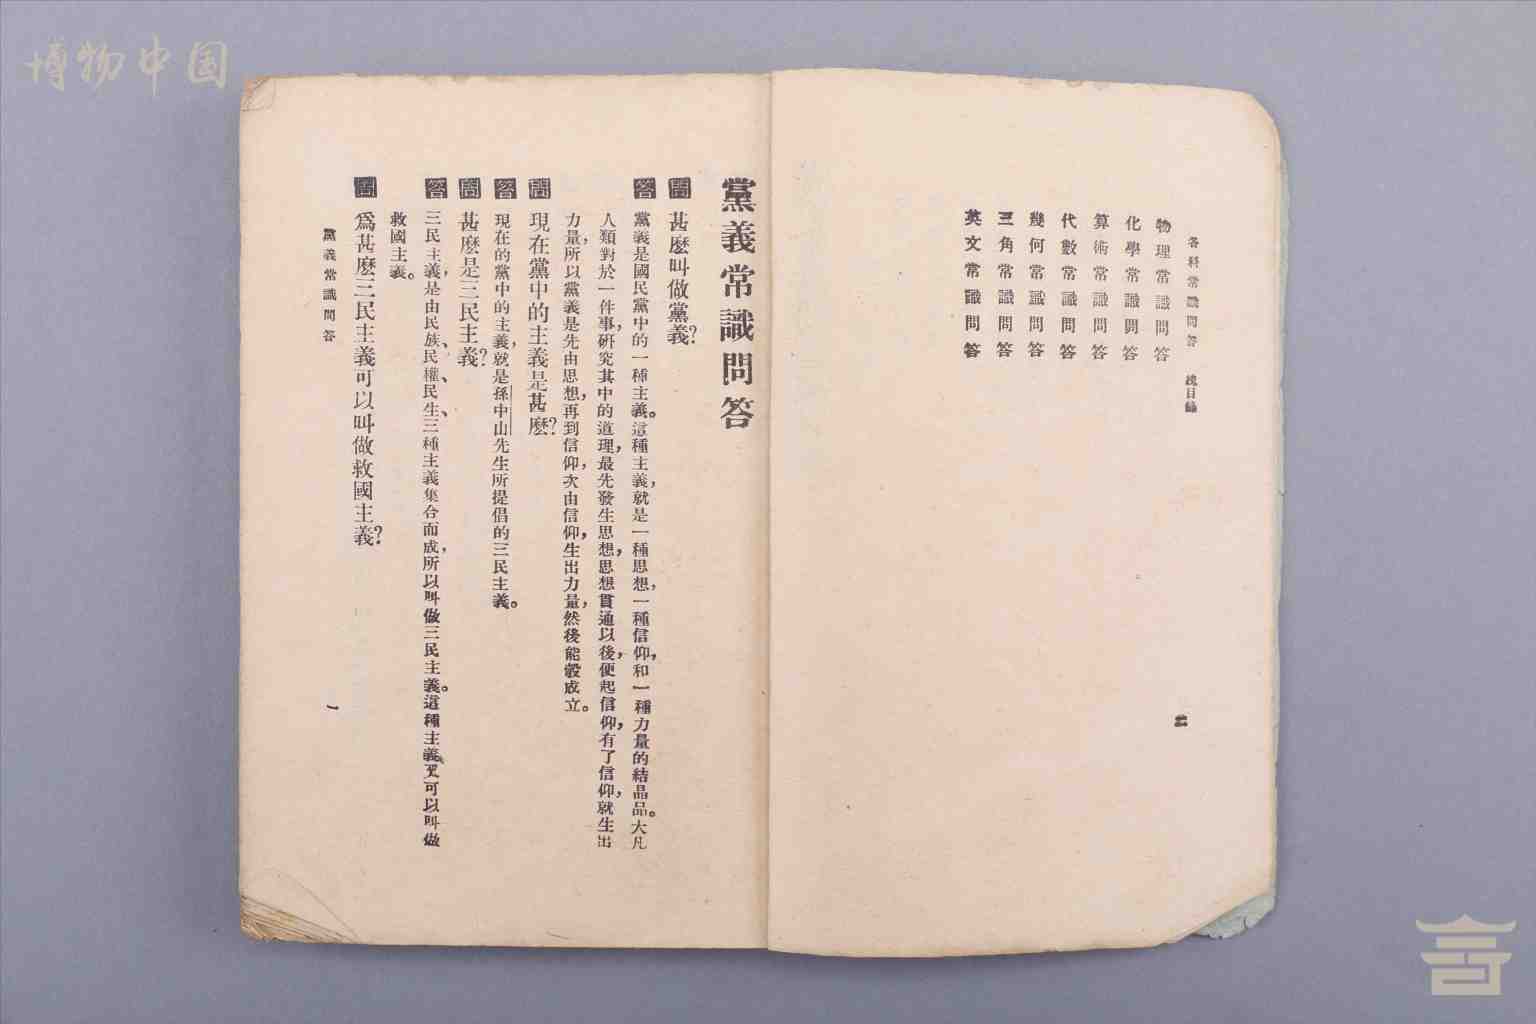 博物中国
各科常識問答 總目錄
物理常識問答
化學常識問答
算術常識問答
代數常識問答
幾何常識問答
三角常識問答
英文常識問答
二
黨義常識問答
問 甚麽叫做黨義?
答 黨義是國民黨中的一種主義。這種主義,就是一種思想,一種信仰,和一種力量的結晶品。大凡
人類對於一件事,研究其中的道理,最先發生思想,思想貫通以後,便起信仰,有了信仰,就生出
力量,所以黨義是先由思想,再到信仰,次由信仰,生出力量,然後能彀成立。
問 現在黨中的主義是甚麽?
答 現在的黨中的主義,就是孫中山先生所提倡的三民主義。
問 甚麽是三民主義?
答 三民主義,是由民族、民權、民生、三種主義集合而成,所以叫做三民主義。這種主義,又可以叫做
救國主義。
問 爲甚麽三民主義可以叫做救國主義?
黨義常識問答
一